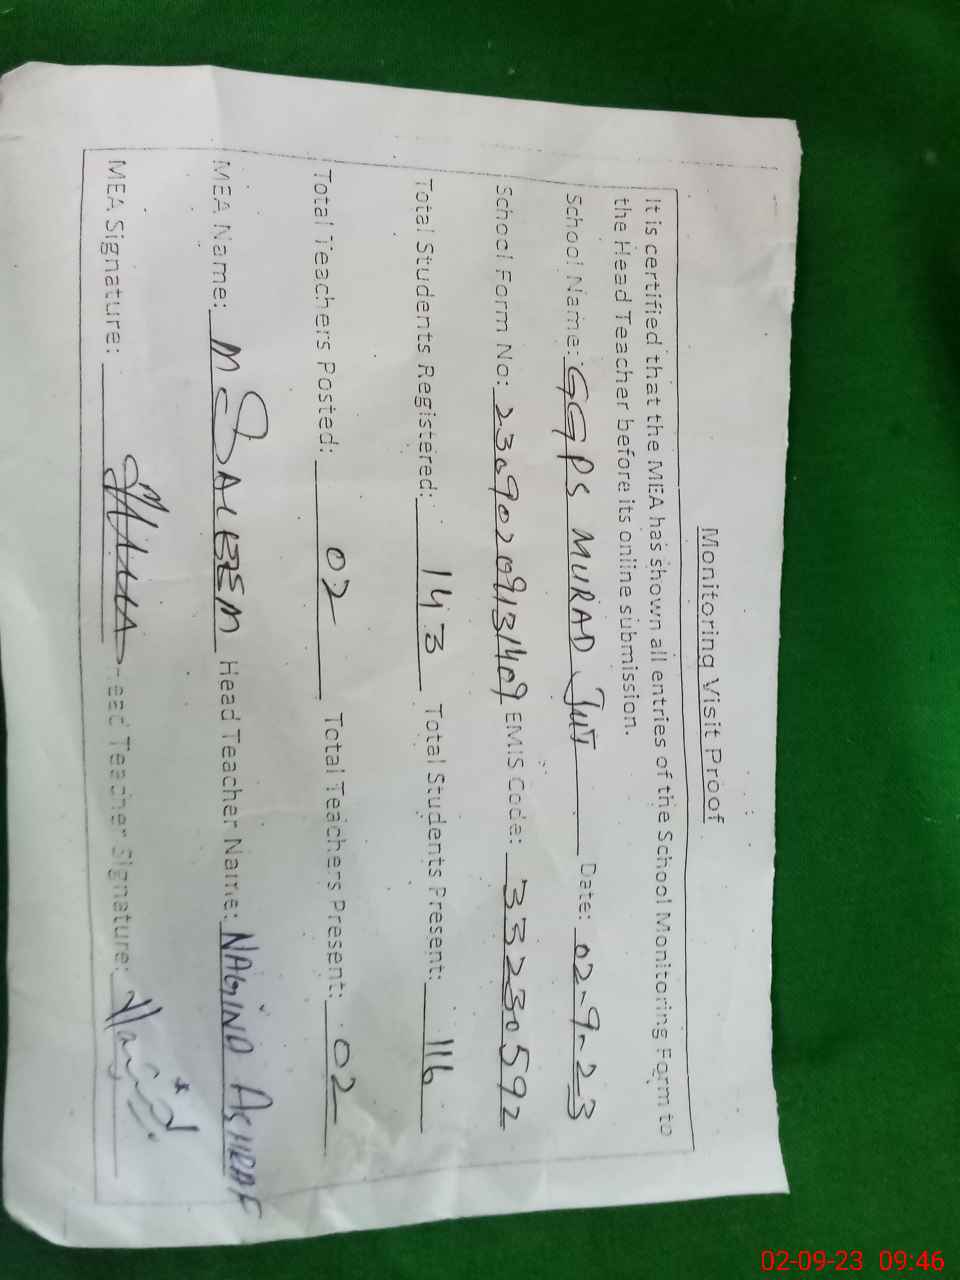 Monitoring Visit Proof
It is certified that the MEA has shown all entries of the School Monitoring Form to
the Head Teacher before its online submission.
School Name: GGPS MURAD JUT Date: 02-9-23
School Form No: 23090209131409 EMIS Code: 33230592
Total Students Registered: 143 Total Students Present: 116
Total Teachers Posted: 02 Total Teachers Present: 02
MEA Name: M SALEEM Head Teacher Name: NAGINA ASHRAF
MEA Signature: Head Teacher Signature:
02-09-23 09:46